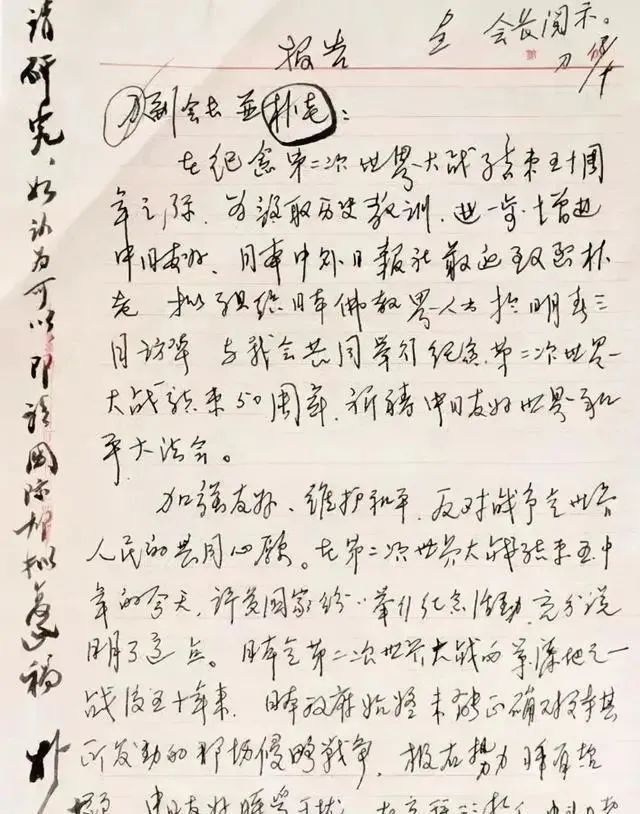 呈 会长阅示。
刀 18/十
报告
刀副会长并朴老：
在纪念第二次世界大战结束五十周
年之际，为汲取历史教训，进一步增进
中日友好，日本中外日报社最近致函朴
老 拟组织日本佛教界人士于明春三
月访华 与我会共同举行纪念第二次世界
大战结束50周年，祈祷中日友好世界和
平大法会。
加强友好、维护和平、反对战争是世界
人民的共同心愿。在第二次世界大战结束五十
年的今天，许多国家纷纷举行纪念活动，充分说
明了这点。日本是第二次世界大战的策源地之一
战后五十年来，日本政府始终未能正确对待其
所发动的那场侵略战争，极右势力
中日友好
请研究，如认为可以，即请国际部拟复函稿
朴